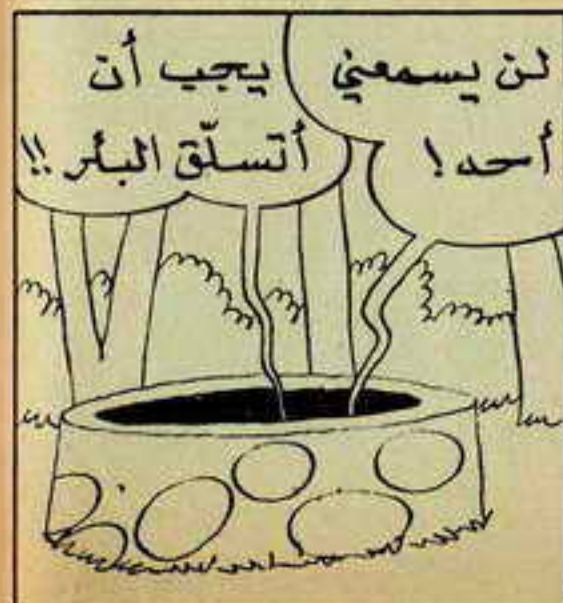 لن يسمعني
أحد!
يجب أن
أتسلّق البئر!!